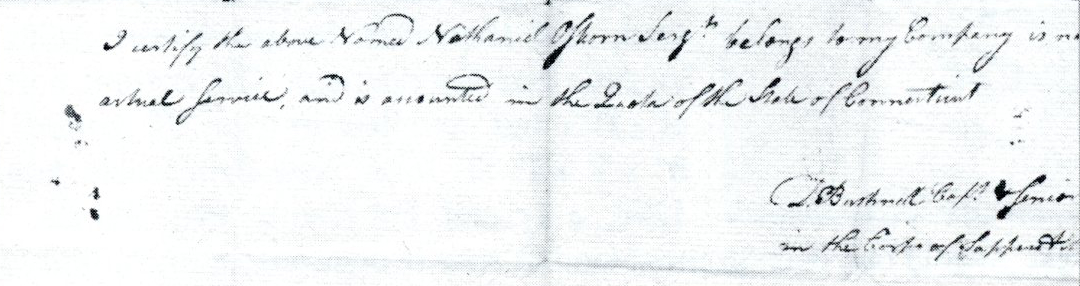 I certify the above Named Nathaniel Osborn Serg.t belongs to my Company is
actual Service, and is accounted in the Quota of the State of Connecticut
D. Bushnell Cap.t & Senior
in the Corps of Sappers &